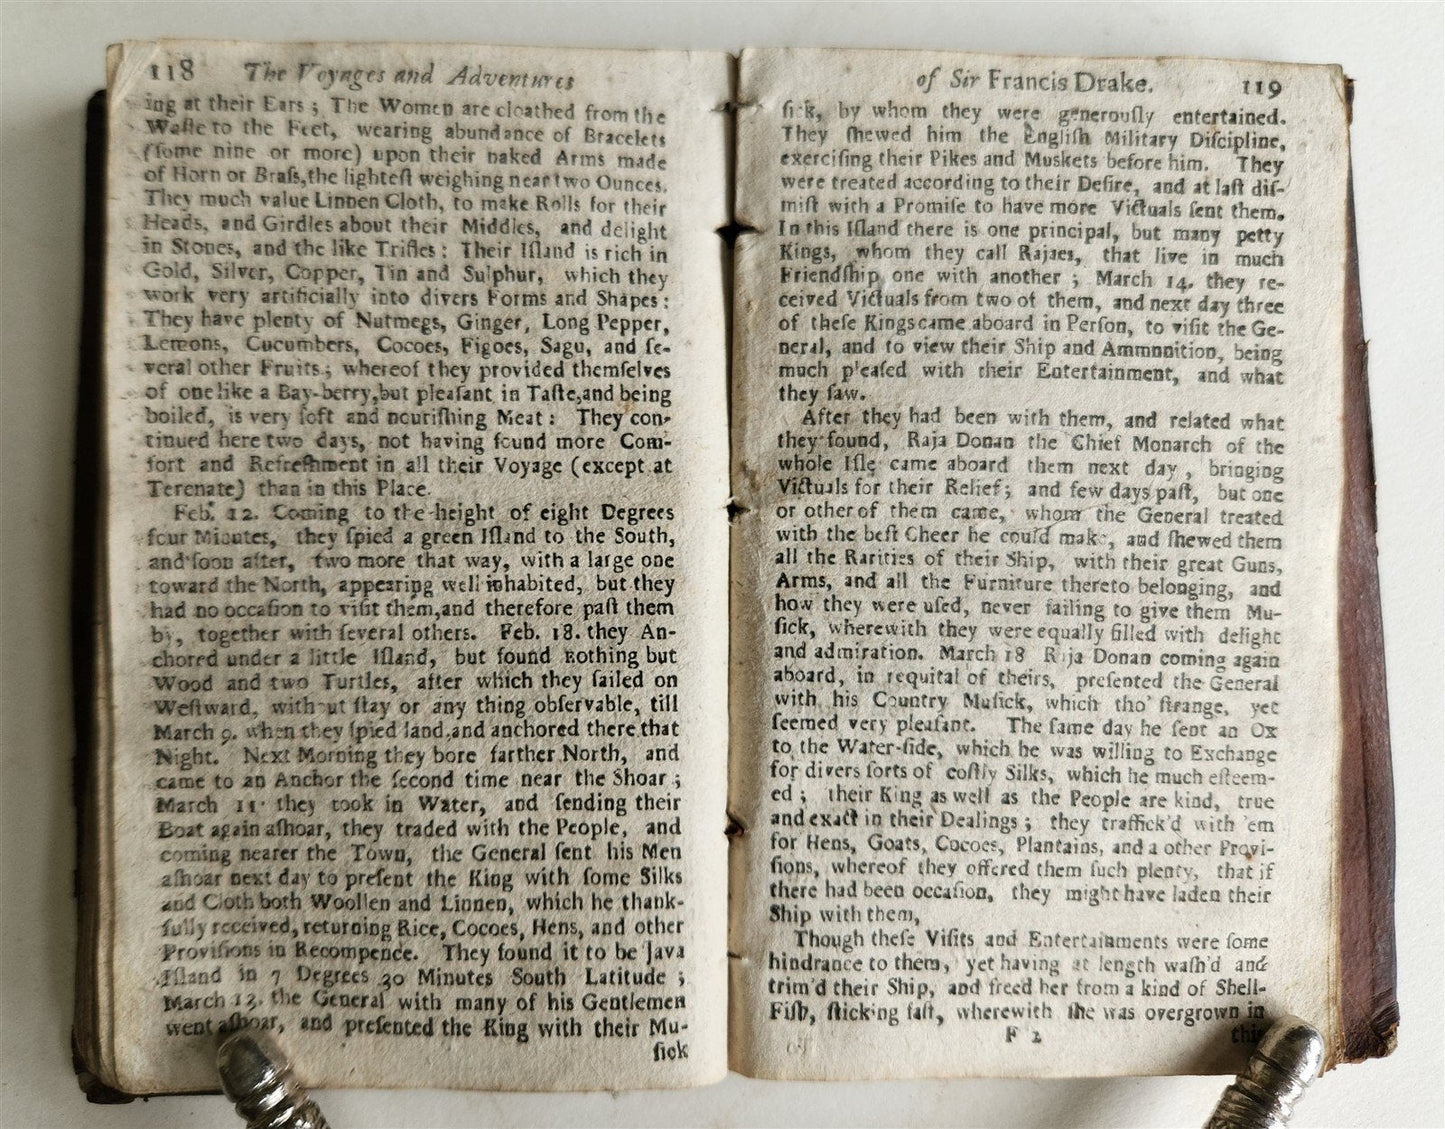 118 The Voyages and Adventures
ing at their Ears ; The Women are cloathed from the
Waste to the Feet, wearing abundance of Bracelets
(ſome nine or more) upon their naked Arms made
of Horn or Braſs, the lighteſt weighing near two Ounces.
They much value Linnen Cloth, to make Rolls for their
Heads, and Girdles about their Middles, and delight
in Stones, and the like Trifles : Their Iſland is rich in
Gold, Silver, Copper, Tin and Sulphur, which they
work very artificially into divers Forms and Shapes :
They have plenty of Nutmegs, Ginger, Long Pepper,
Lemons, Cucumbers, Cocoes, Figoes, Sagu, and ſe-
veral other Fruits ; whereof they provided themſelves
of one like a Bay-berry, but pleaſant in Taſte, and being
boiled, is very ſoft and nouriſhing Meat : They con-
tinued here two days, not having found more Com-
fort and Refreſhment in all their Voyage (except at
Terenate) than in this Place.
Feb. 12. Coming to the height of eight Degrees
four Minutes, they ſpied a green Iſland to the South,
and ſoon after, two more that way, with a large one
toward the North, appearing well inhabited, but they
had no occaſion to viſit them, and therefore paſt them
by, together with ſeveral others. Feb. 18. they An-
chored under a little Iſland, but found nothing but
Wood and two Turtles, after which they ſailed on
Weſtward, without ſtay or any thing obſervable, till
March 9. when they ſpied land, and anchored there that
Night. Next Morning they bore farther North, and
came to an Anchor the ſecond time near the Shoar ;
March 11. they took in Water, and ſending their
Boat again aſhoar, they traded with the People, and
coming nearer the Town, the General ſent his Men
aſhoar next day to preſent the King with ſome Silks
and Cloth both Woollen and Linnen, which he thank-
fully received, returning Rice, Cocoes, Hens, and other
Proviſions in Recompence. They found it to be Java
Iſland in 7 Degrees 30 Minutes South Latitude ;
March 13. the General with many of his Gentlemen
went aſhoar, and preſented the King with their Mu-
ſick
of Sir Francis Drake. 119
ſick, by whom they were generouſly entertained.
They ſhewed him the Engliſh Military Diſcipline,
exerciſing their Pikes and Muskets before him. They
were treated according to their Deſire, and at laſt diſ-
miſt with a Promiſe to have more Victuals ſent them.
In this Iſland there is one principal, but many petty
Kings, whom they call Rajaes, that live in much
Friendſhip one with another ; March 14. they re-
ceived Victuals from two of them, and next day three
of theſe Kings came aboard in Perſon, to viſit the Ge-
neral, and to view their Ship and Ammnnition, being
much pleaſed with their Entertainment, and what
they ſaw.
After they had been with them, and related what
they found, Raja Donan the Chief Monarch of the
whole Iſle came aboard them next day, bringing
Victuals for their Relief ; and few days paſt, but one
or other of them came, whom the General treated
with the beſt Cheer he could make, and ſhewed them
all the Rarities of their Ship, with their great Guns,
Arms, and all the Furniture thereto belonging, and
how they were uſed, never failing to give them Mu-
ſick, wherewith they were equally filled with delight
and admiration. March 18 Raja Donan coming again
aboard, in requital of theirs, preſented the General
with his Country Muſick, which tho' ſtrange, yet
ſeemed very pleaſant. The ſame day he ſent an Ox
to the Water-ſide, which he was willing to Exchange
for divers ſorts of coſtly Silks, which he much eſteem-
ed ; their King as well as the People are kind, true
and exact in their Dealings ; they traffick'd with 'em
for Hens, Goats, Cocoes, Plantains, and a other Provi-
ſions, whereof they offered them ſuch plenty, that if
there had been occaſion, they might have laden their
Ship with them,
Though theſe Viſits and Entertainments were ſome
hindrance to them, yet having at length waſh'd and
trim'd their Ship, and freed her from a kind of Shell-
Fiſh, ſticking faſt, wherewith ſhe was overgrown in
F 2 this